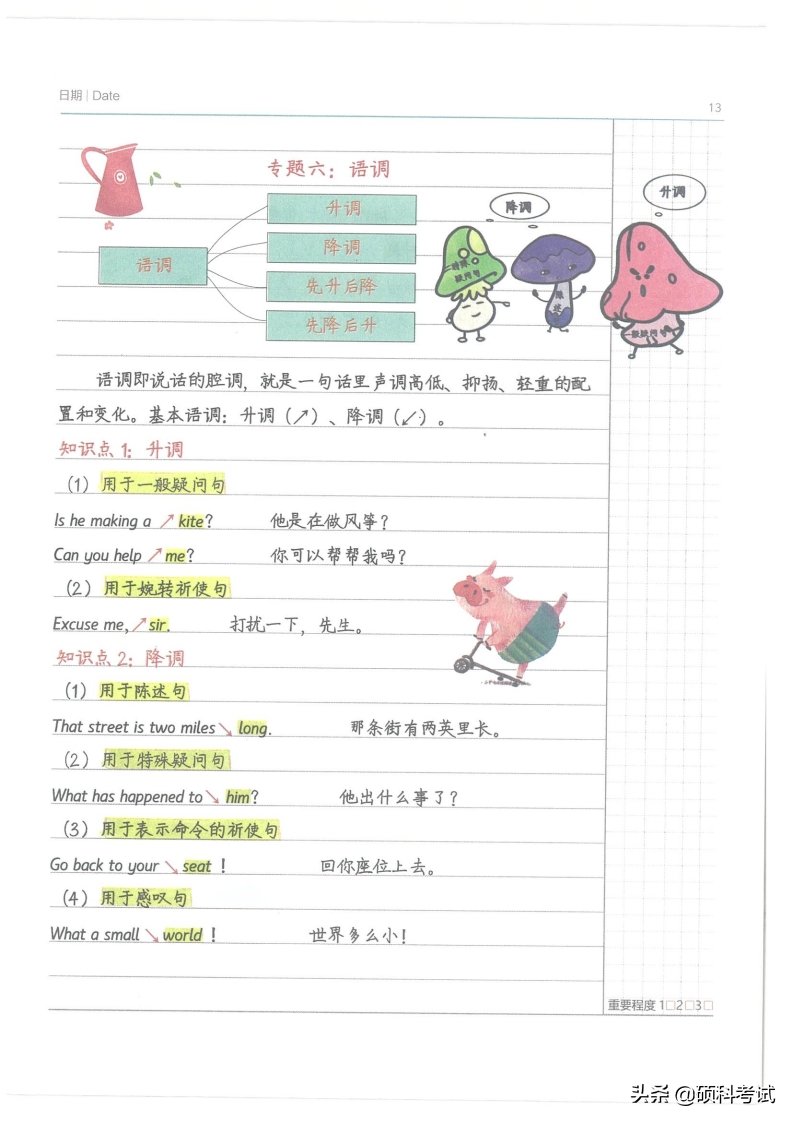 日期 | Date
13
专题六：语调
语调
升调
降调
先升后降
先降后升
降调
升调
特殊
疑问句
一般疑问句
语调即说话的腔调，就是一句话里声调高低、抑扬、轻重的配
置和变化。基本语调：升调（↗）、降调（↙）。
知识点1：升调
（1）用于一般疑问句
Is he making a ↗kite? 他是在做风筝？
Can you help ↗me? 你可以帮帮我吗？
（2）用于婉转祈使句
Excuse me,↗sir. 打扰一下，先生。
知识点2：降调
（1）用于陈述句
That street is two miles↘ long. 那条街有两英里长。
（2）用于特殊疑问句
What has happened to↘ him? 他出什么事了？
（3）用于表示命令的祈使句
Go back to your ↘ seat ! 回你座位上去。
（4）用于感叹句
What a small ↘world ! 世界多么小！
重要程度 1□2□3□
头条 @硕科考试